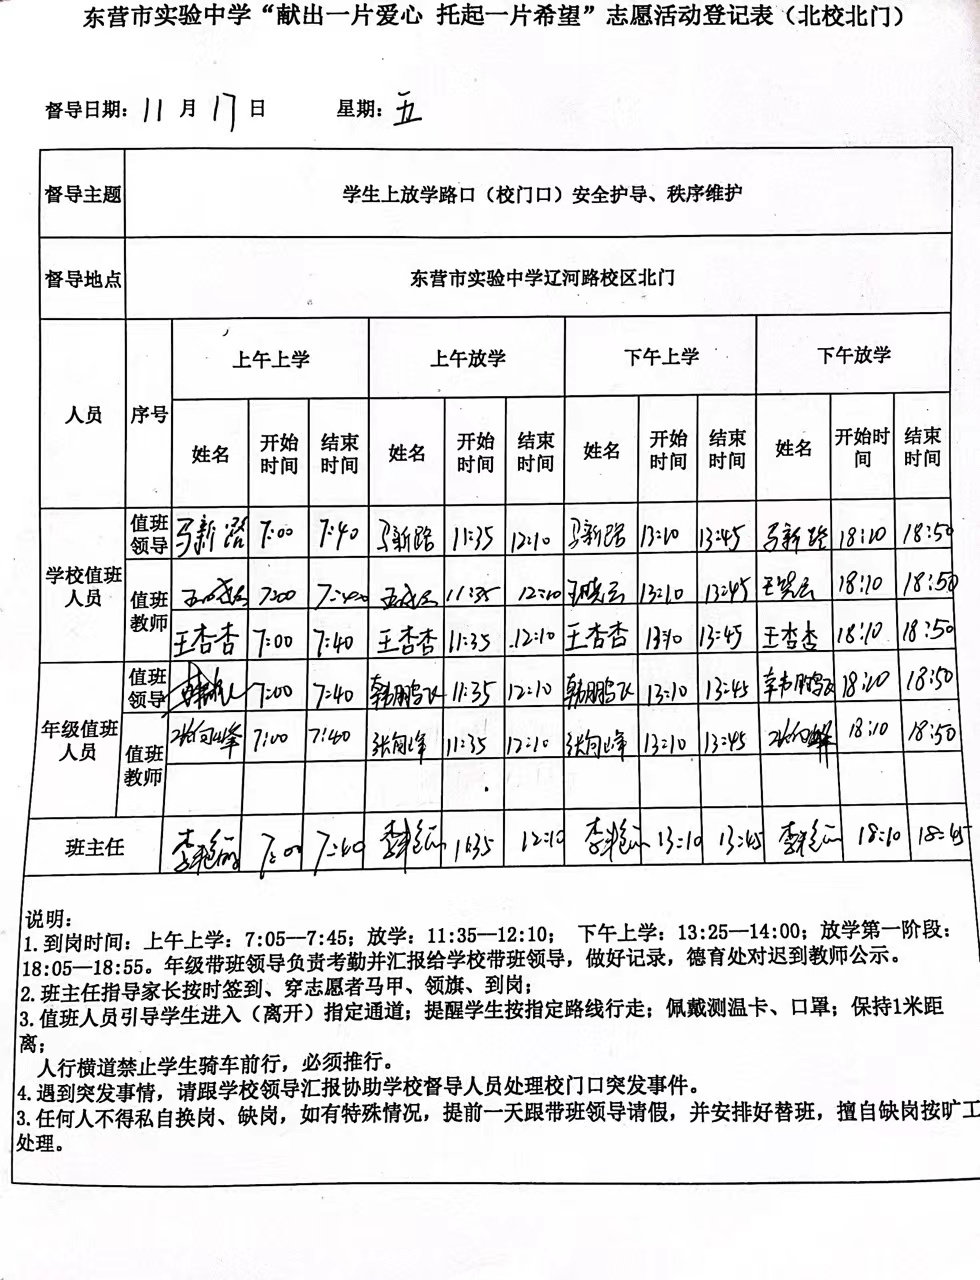 东营市实验中学“献出一片爱心 托起一片希望”志愿活动登记表（北校北门）
督导日期：11月17日 星期：五
督导主题 学生上放学路口（校门口）安全护导、秩序维护
督导地点 东营市实验中学辽河路校区北门
人员 序号 上午上学 上午放学 下午上学 下午放学
姓名 开始时间 结束时间 姓名 开始时间 结束时间 姓名 开始时间 结束时间 姓名 开始时间 结束时间
学校值班人员 值班领导 马新路 7:00 7:40 马新路 11:35 12:10 马新路 13:10 13:45 马新路 18:10 18:50
值班教师 7:00 7:40 11:35 12:10 王晓云 13:10 13:45 18:10 18:50
王杏杏 7:00 7:40 王杏杏 11:35 12:10 王杏杏 13:10 13:45 王杏杏 18:10 18:50
年级值班人员 值班领导 7:00 7:40 韩鹏飞 11:35 12:10 韩鹏飞 13:10 13:45 韩鹏飞 18:10 18:50
值班教师 张向峰 7:00 7:40 张向峰 11:35 12:10 张向峰 13:10 13:45 张向峰 18:10 18:50
班主任 李艳丽 7:00 7:40 李艳丽 11:35 12:10 李艳丽 13:10 13:45 李艳丽 18:10 18:45
说明：
1.到岗时间：上午上学：7:05—7:45；放学：11:35—12:10； 下午上学：13:25—14:00；放学第一阶段：
18:05—18:55。年级带班领导负责考勤并汇报给学校带班领导，做好记录，德育处对迟到教师公示。
2.班主任指导家长按时签到、穿志愿者马甲、领旗、到岗；
3.值班人员引导学生进入（离开）指定通道；提醒学生按指定路线行走；佩戴测温卡、口罩；保持1米距
离；
人行横道禁止学生骑车前行，必须推行。
4.遇到突发事情，请跟学校领导汇报协助学校督导人员处理校门口突发事件。
3.任何人不得私自换岗、缺岗，如有特殊情况，提前一天跟带班领导请假，并安排好替班，擅自缺岗按旷工
处理。